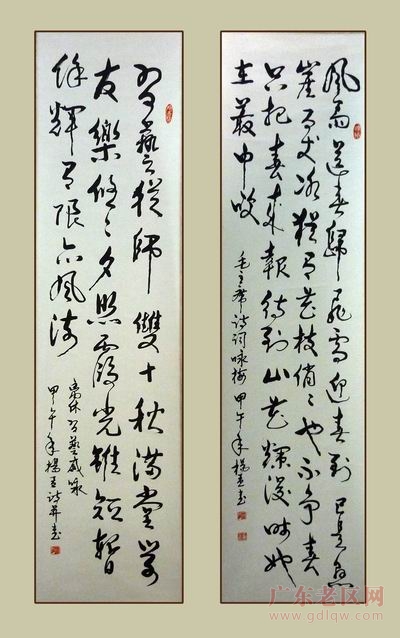 風雨送春歸飛雪迎春到已是懸
崖百丈冰猶有花枝俏〻也不争春
只把春来報待到山花爛漫時她
在叢中咲
毛主席诗词咏梅 甲午年楊书
習藝從師雙十秋滿堂學
友樂悠〻夕照霞光雖短暫
餘輝有限亦風流
离休習藝感咏
甲午年楊诗并书
广东老区网
www.gdlqw.com